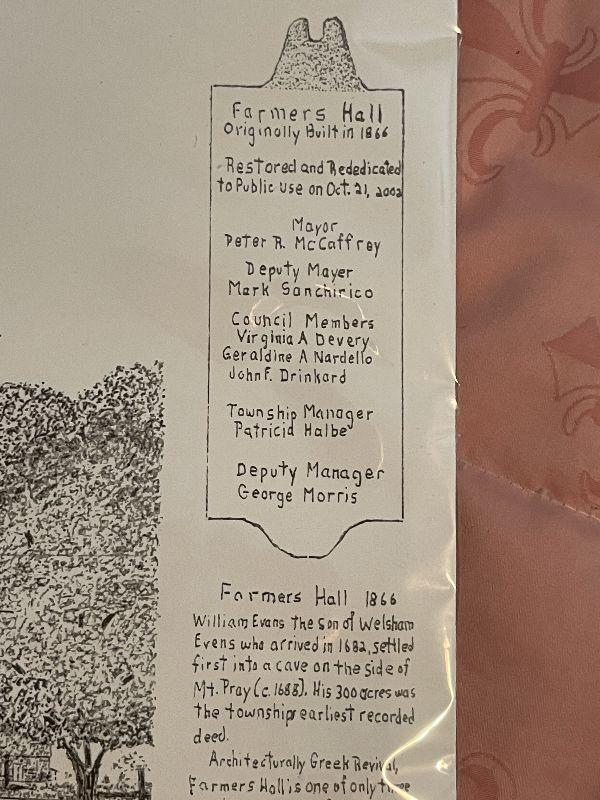 Farmers Hall
Originolly Built in 1866
Restored and Rededicated
to Public use on Oct. 21, 2002
Mayor
Peter R. McCaffrey
Deputy Mayer
Mark Sanchirico
Council Members
Virginia A Devery
Geraldine A Nardello
John F. Drinkard
Township Manager
Patricia Halbe
Deputy Manager
George Morris
Farmers Hall 1866
William Evans the son of Welsham
Evens who arrived in 1682, settled
first into a cave on the side of
Mt. Pray (c. 1688). His 300 acres was
the township earliest recorded
deed.
Architecturally Greek Revival,
Farmers Hall is one of only three